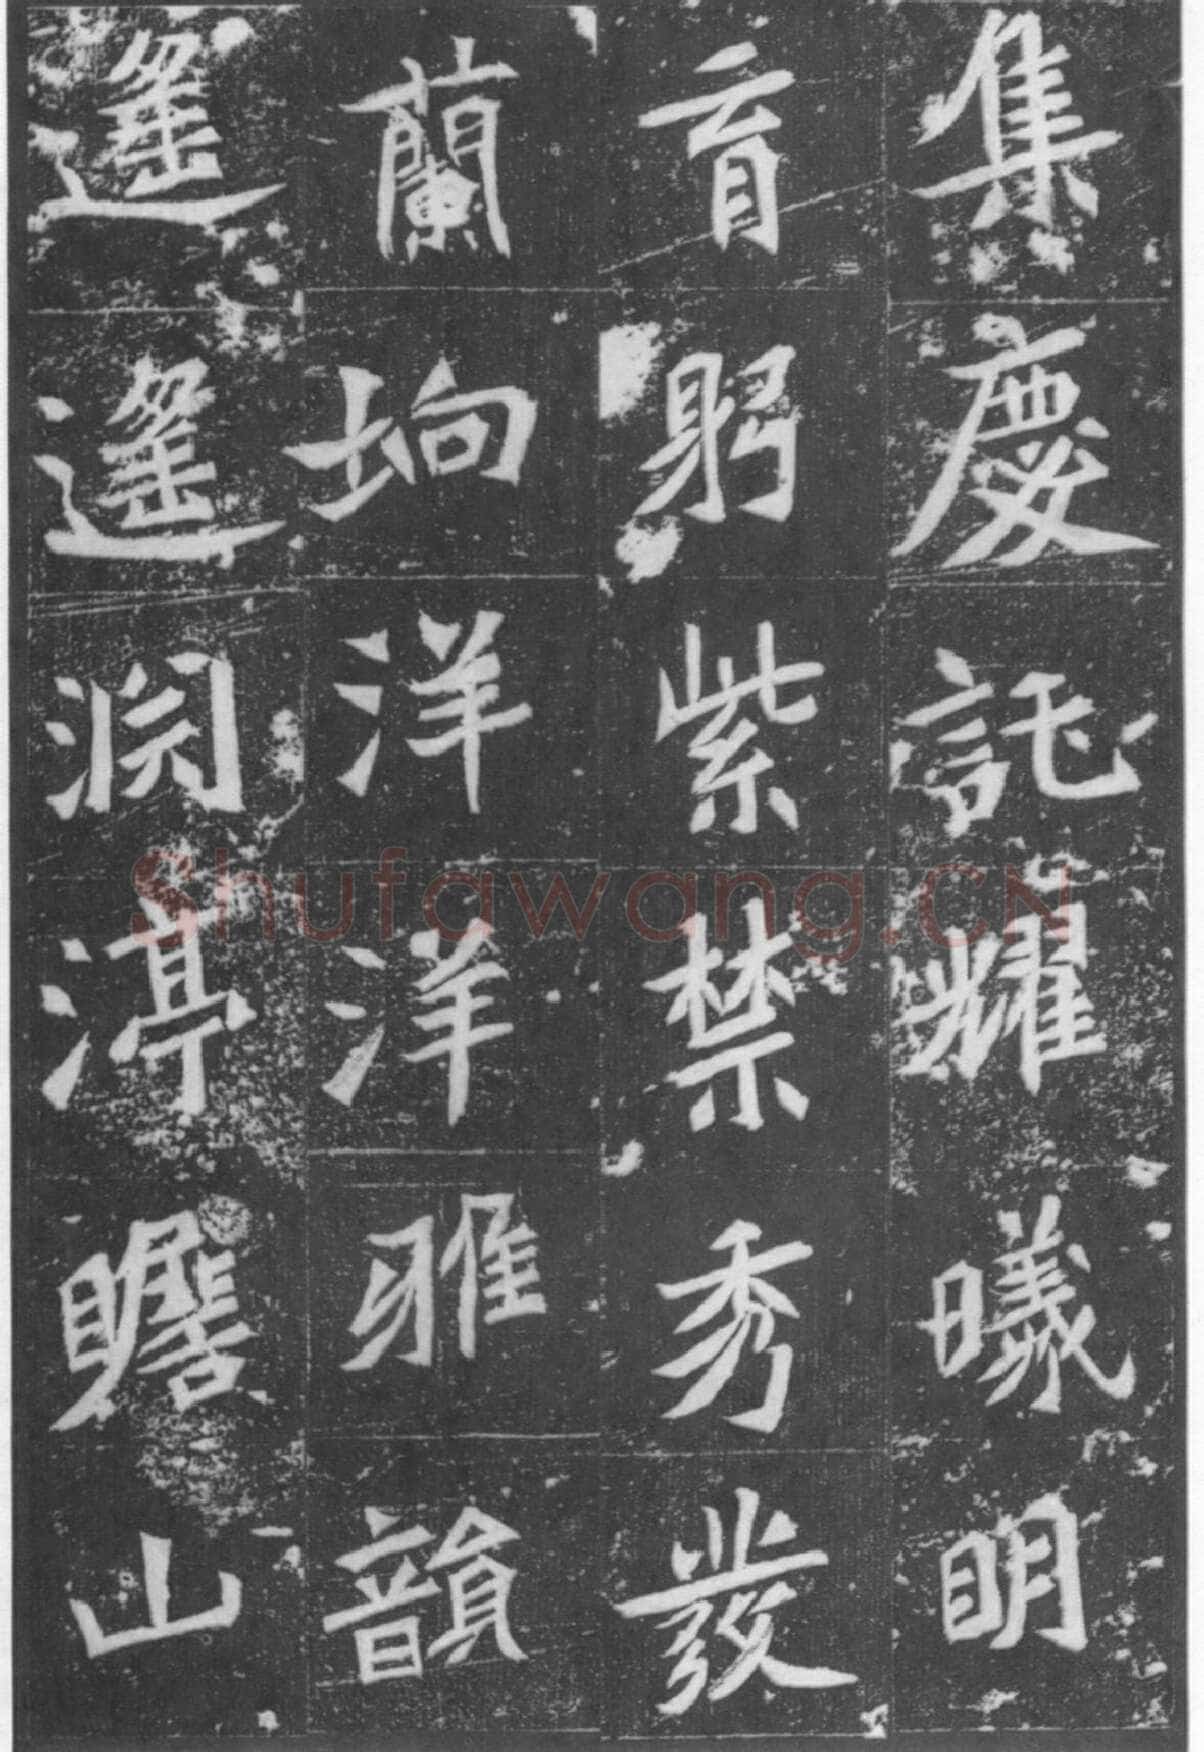 集慶託耀曦明
育躬紫禁秀發
蘭坰洋洋雅韻
遥遥淵渟瞻山
Shufawang.CN